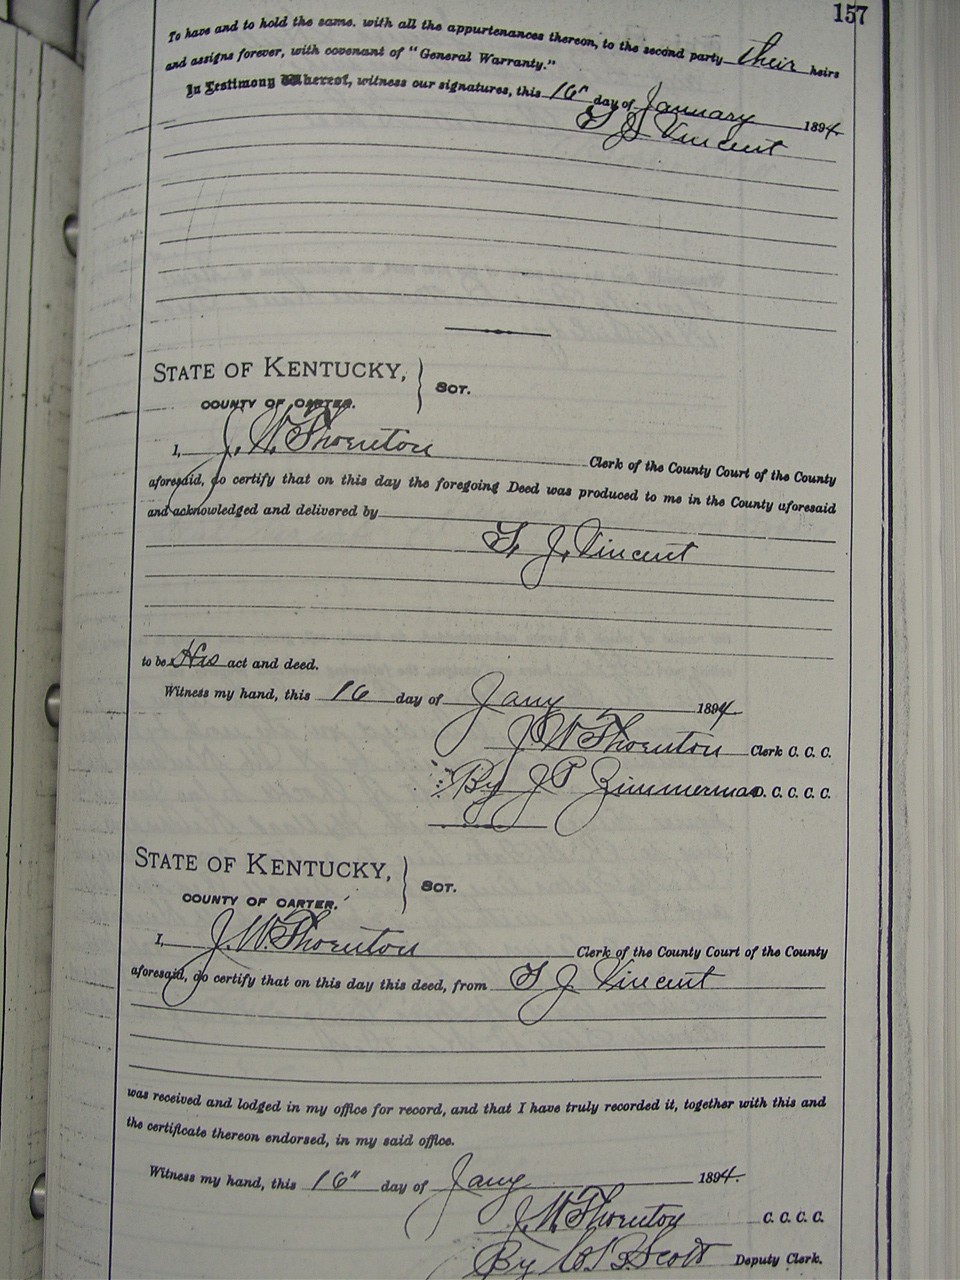 157
To have and to hold the same, with all the appurtenances thereon, to the second party their heirs
and assigns forever, with covenant of "General Warranty."
In Testimony Whereof, witness our signatures, this 16" day of January 1894
T J Vincent
STATE OF KENTUCKY,
COUNTY OF CARTER. } SCT.
I, J. W. Thornton Clerk of the County Court of the County
aforesaid, do certify that on this day the foregoing Deed was produced to me in the County aforesaid
and acknowledged and delivered by
T. J. Vincent
to be His act and deed.
Witness my hand, this 16 day of Jany 1894
J W Thornton Clerk C. C. C.
By J P Zimmerman D. C. C. C. C.
STATE OF KENTUCKY,
COUNTY OF CARTER. } SCT.
I, J. W. Thornton Clerk of the County Court of the County
aforesaid, do certify that on this day this deed, from T J Vincent
was received and lodged in my office for record, and that I have truly recorded it, together with this and
the certificate thereon endorsed, in my said office.
Witness my hand, this 16" day of Jany 1894.
J. W Thornton C. C. C. C.
By Scott Deputy Clerk.